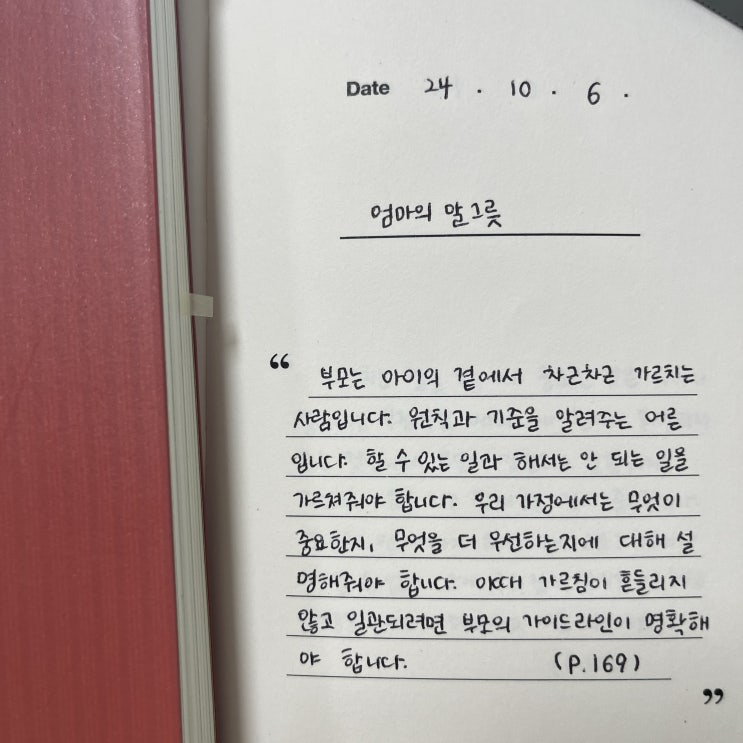 Date 24 . 10 . 6 .
엄마의 말그릇
“ 부모는 아이의 곁에서 차근차근 가르치는
사람입니다. 원칙과 기준을 알려주는 어른
입니다. 할 수 있는 일과 해서는 안 되는 일을
가르쳐줘야 합니다. 우리 가정에서는 무엇이
중요한지, 무엇을 더 우선하는지에 대해 설
명해줘야 합니다. 이때 가르침이 흔들리지
않고 일관되려면 부모의 가이드라인이 명확해
야 합니다. (P.169)
”